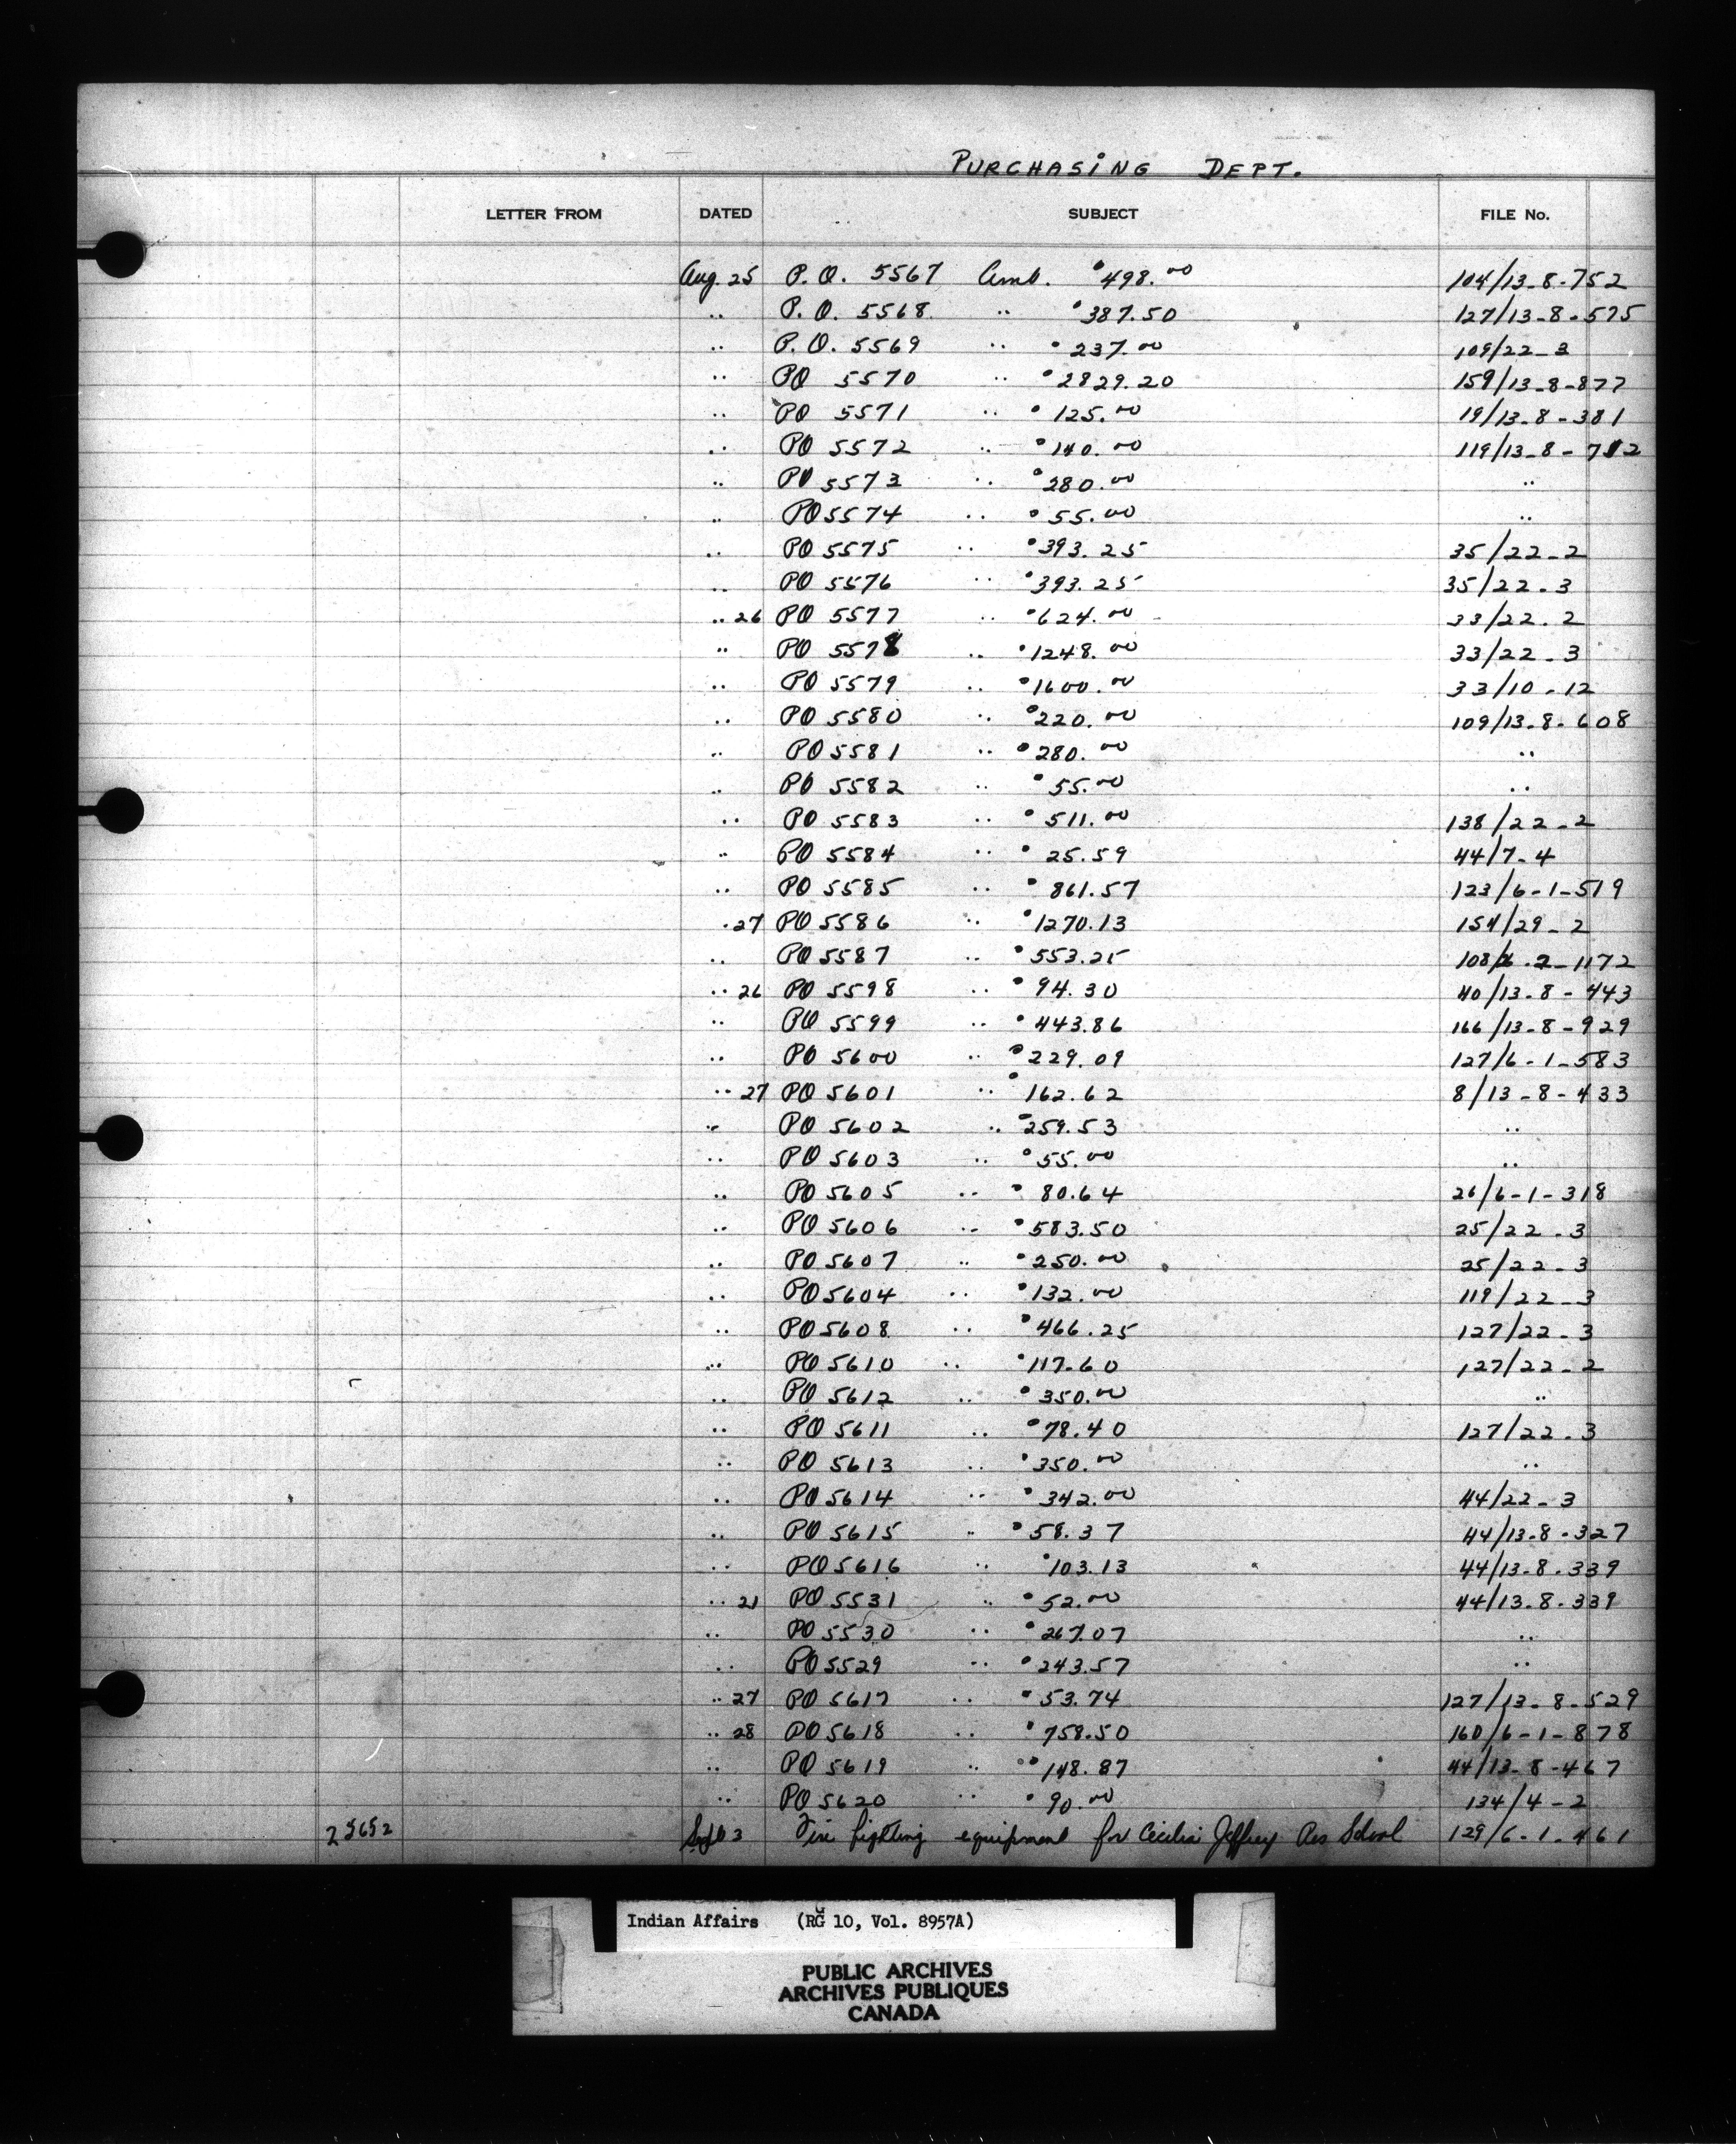 PURCHASING DEPT.
LETTER FROM DATED SUBJECT FILE No.
Aug. 25 P.O. 5567 Amb. 498.00 104/13-8-752
.. P.O. 5568 .. 387.50 127/13-8-575
.. P.O. 5569 .. 237.00 109/22-3
.. PO 5570 .. 2829.20 159/13-8-877
.. PO 5571 .. 125.00 19/13-8-381
.. PO 5572 .. 140.00 119/13-8-712
.. PO 5573 .. 280.00 ..
.. PO 5574 .. 55.00 ..
.. PO 5575 .. 393.25 35/22-2
.. PO 5576 .. 393.25 35/22-3
.. 26 PO 5577 .. 624.00 33/22.2
.. PO 5578 .. 1248.00 33/22-3
.. PO 5579 .. 1600.00 33/10-12
.. PO 5580 .. 220.00 109/13-8-608
.. PO 5581 .. 280.00 ..
.. PO 5582 .. 55.00 ..
.. PO 5583 .. 511.00 138/22-2
.. PO 5584 .. 25.59 44/7-4
.. PO 5585 .. 861.57 123/6-1-519
.27 PO 5586 .. 1270.13 154/29-2
.. PO 5587 .. 553.25 108/6.2-1172
.. 26 PO 5598 .. 94.30 40/13-8-443
.. PO 5599 .. 443.86 166/13-8-929
.. PO 5600 .. 229.09 127/6-1-583
.. 27 PO 5601 .. 162.62 8/13-8-433
.. PO 5602 .. 259.53 ..
.. PO 5603 .. 55.00 ..
.. PO 5605 .. 80.64 26/6-1-318
.. PO 5606 .. 583.50 25/22-3
.. PO 5607 .. 250.00 25/22-3
.. PO 5604 .. 132.00 119/22-3
.. PO 5608 .. 466.25 127/22-3
.. PO 5610 .. 117.60 127/22-2
.. PO 5612 .. 350.00 ..
.. PO 5611 .. 78.40 127/22.3
.. PO 5613 .. 350.00 ..
.. PO 5614 .. 342.00 44/22-3
.. PO 5615 .. 58.37 44/13-8-327
.. PO 5616 .. 103.13 44/13-8-339
.. 21 PO 5531 .. 52.00 44/13-8-339
.. PO 5530 .. 267.07 ..
.. PO 5529 .. 243.57 ..
.. 27 PO 5617 .. 53.74 127/13-8-529
.. 28 PO 5618 .. 758.50 160/6-1-878
.. PO 5619 .. 148.87 44/13-8-467
.. PO 5620 .. 90.00 134/4-2
25652 Sept 3 Fire fighting equipment for Cecilia Jeffrey Res School 129/6-1-461
Indian Affairs (RG 10, Vol. 8957A)
PUBLIC ARCHIVES
ARCHIVES PUBLIQUES
CANADA